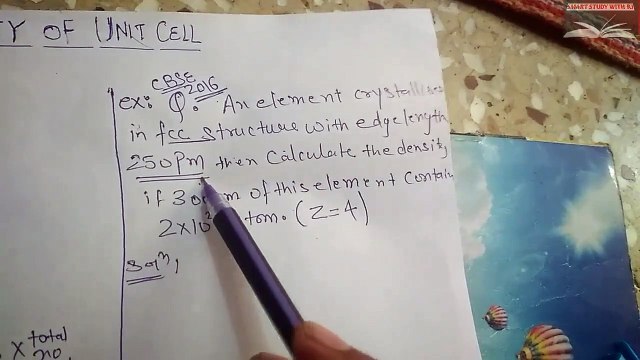 SMART STUDY WITH RJ
TY OF UNIT CELL
CBSE
2016
ex: Q. An element crystallises
in fcc structure with edge length
250 Pm then Calculate the density
if 300 gm of this element contain
2×10 atom. (Z=4)
Solⁿ,
× total
no.